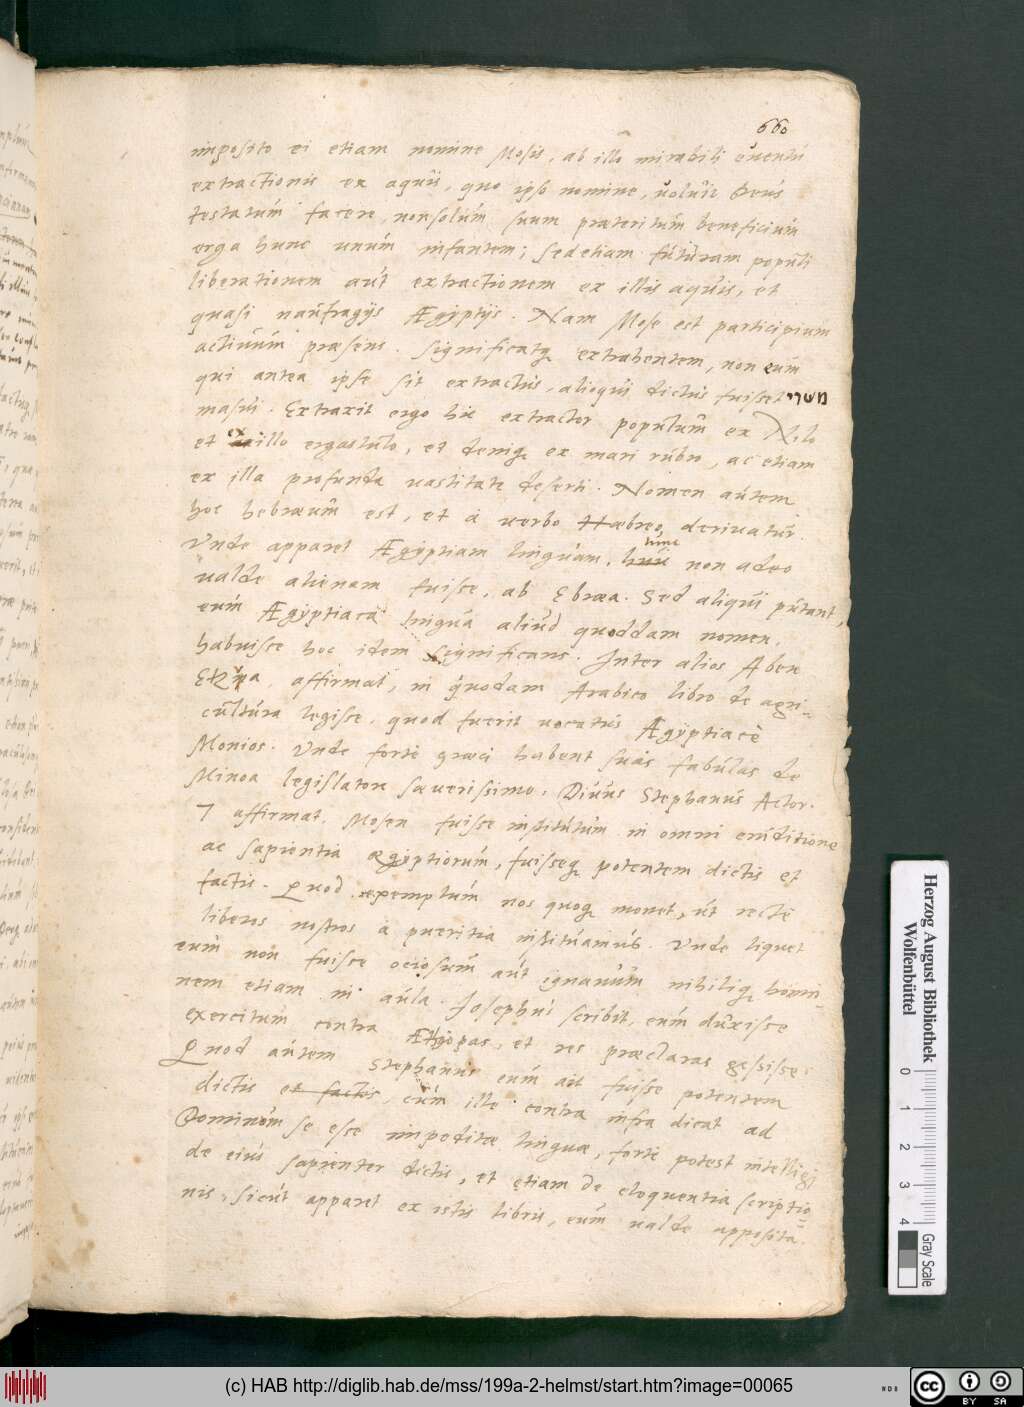 660
imposito ei etiam nomine Mosis, ab illo mirabili euentu
extractionis ex aquis, quo ipso nomine, voluit Deus
testatum facere, non solum suum præteritum beneficium
erga hunc unum infantem; sed etiam futuram populi
liberationem aut extractionem ex illis aquis, et
quasi naufragijs Ægyptijs. Nam Mose est participium
actiuum præsens. significatq extrahentem, non eum
qui antea ipse sit extractus, alioqui dictus fuisset משוי
masui. Extraxit ergo hic extractor populum ex Nilo
et ex illo ergastulo, et deniq ex mari rubro, ac etiam
ex illa profunda vastitate deserti. Nomen autem
hoc hebræum est, et à verbo Hæbreo deriuatur.
Vnde apparet Ægyptiam linguam, tunc non adeo
valde alienam fuisse, ab Ebræa. Sed aliqui putant,
eum Ægyptiaca lingua aliud quoddam nomen,
habuisse hoc idem significans. Inter alios Aben
Ezra, affirmat, in quodam Arabico libro de agri=
cultura legisse, quod fuerit vocatus Ægyptiacè
Monios. Vnde fortè græci habent suas fabulas de
Minoa legislatore sæuerissimo. Diuus Stephanus Actor.
7 affirmat, Mosen fuisse institutum in omni eruditione
ac sapientia ægyptiorum, fuisseq potentem dictis et
factis. Quod exemplum nos quoq monet, ut rectè
liberos nostros à pueritia instituamus. Vnde liquet
eum non fuisse ociosum aut ignauum nihiliq homi=
nem etiam in aula. Josephus scribit, eum duxisse
exercitum contra Æthiopas, et res præclaras gessisse.
Quod autem Stephanus eum ait fuisse potentem
dictis et factis, cum ille contra infra dicat ad
Dominum se esse impeditæ linguæ, fortè potest intelligi
de eius sapienter dictis, et etiam de eloquentia scriptio=
nis, sicut apparet ex istis libris, eum valde apposita
Herzog August Bibliothek
Wolfenbüttel
0
1
2
3
4
Gray Scale
(c) HAB http://diglib.hab.de/mss/199a-2-helmst/start.htm?image=00065
cc BY SA